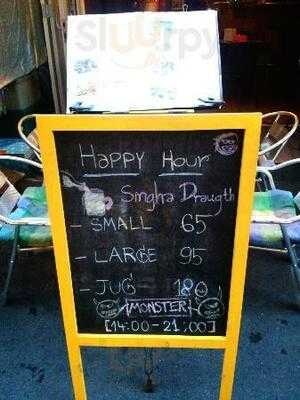 Sluurpy
Happy Hour
Singha Draugth
- SMALL 65
- LARGE 95
- JUG 180
MONSTER
[14:00-21:00]